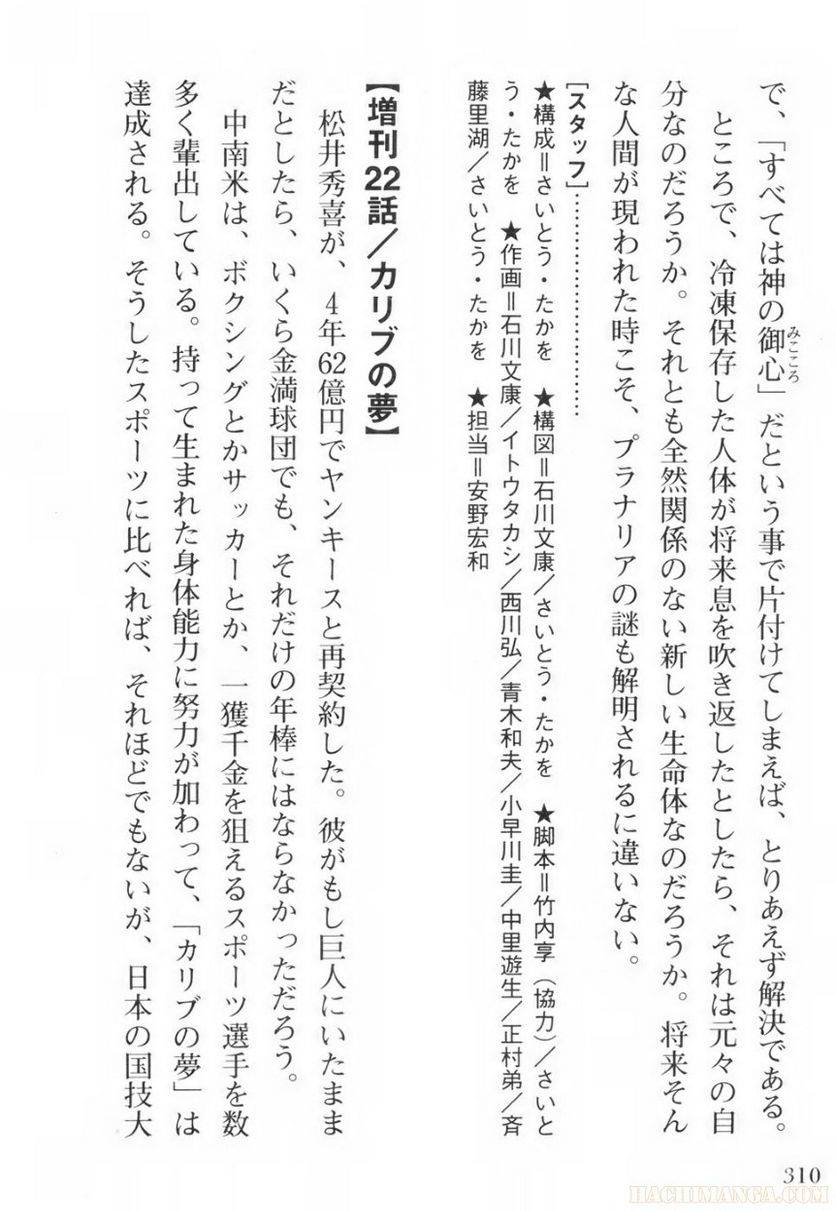 で、「すべては神の御心」だという事で片付けてしまえば、とりあえず解決である。
みこころ
ところで、冷凍保存した人体が将来息を吹き返したとしたら、それは元々の自
分なのだろうか。それとも全然関係のない新しい生命体なのだろうか。将来そん
な人間が現われた時こそ、プラナリアの謎も解明されるに違いない。
[スタッフ]………………………………
★構成＝さいとう・たかを ★構図＝石川文康/さいとう・たかを ★脚本＝竹内享（協力）/さいと
う・たかを ★作画＝石川文康/イトウタカシ/西川弘/青木和夫/小早川圭/中里遊生/正村弟/斉
藤里湖/さいとう・たかを ★担当＝安野宏和
【増刊22話/カリブの夢】
松井秀喜が、4年62億円でヤンキースと再契約した。彼がもし巨人にいたまま
だとしたら、いくら金満球団でも、それだけの年棒にはならなかっただろう。
中南米は、ボクシングとかサッカーとか、一獲千金を狙えるスポーツ選手を数
多く輩出している。持って生まれた身体能力に努力が加わって、「カリブの夢」は
達成される。そうしたスポーツに比べれば、それほどでもないが、日本の国技大
310
HACHIMANGA.COM